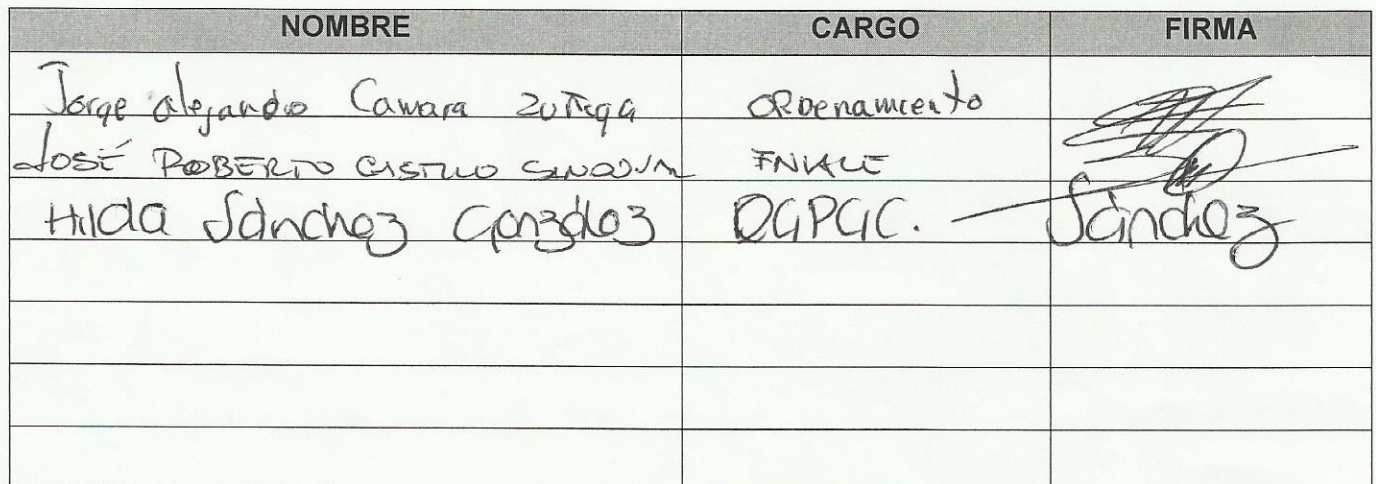 NOMBRE CARGO FIRMA
Jorge Alejandro Camara Zuñiga Ordenamiento
JOSÉ ROBERTO CASTILLO
Hilda Sánchez González DGPGC. Sánchez